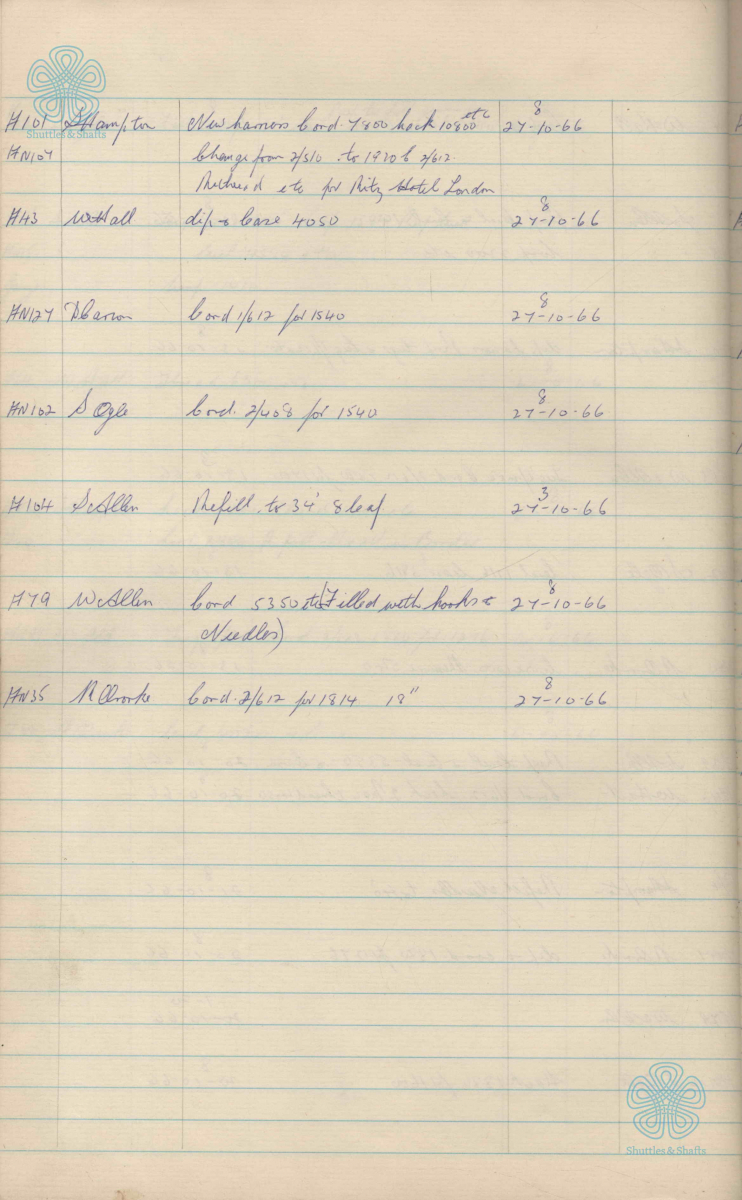 8
A101 S Hampton New harness Cord. 7800 hack 10800 etc 27-10-66
Shuttles & Shafts
AN107 Change from 2/510 to 1920 & 2/612
etc for Ritz Hotel London
8
A43 W Hall dip & Case 4050 27-10-66
8
AN127 D Carson Cord 1/612 for 1540 27-10-66
8
AN102 S Ogle Cord. 2/408 for 1540 27-10-66
3
A104 S Allen Refill to 34' 8 leaf 27-10-66
8
A79 W Allen Cord 5350 etc (Filled with hooks & 27-10-66
Needles)
8
AN35 R ORorke Cord. 2/612 for 1814 18" 27-10-66
Shuttles & Shafts